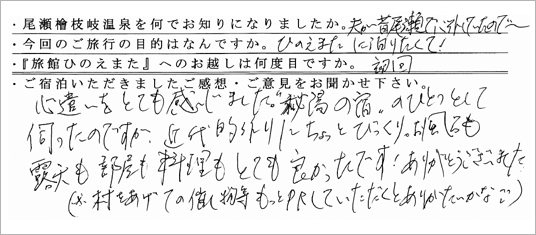 ・尾瀬檜枝岐温泉を何でお知りになりましたか。夫が昔尾瀬でバイトしていたので〜
・今回のご旅行の目的はなんですか。ひのえまたに泊りたくて!
・『旅館ひのえまた』へのお越しは何度目ですか。初回
・ご宿泊いただきましたご感想・ご意見をお聞かせ下さい。
心遣いをとても感じました。"秘湯の宿"のひとつとして
伺ったのですが、近代的な作りにちょっとびっくり。お風呂も
露天も部屋も料理もとても良かったです!ありがとうございました
(村をあげての催し物等もっとPRしていただくとありがたいかな)